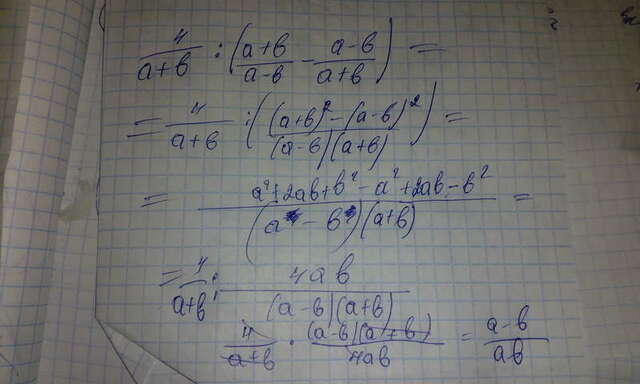 4/(a+b) : ((a+b)/(a-b) - (a-b)/(a+b)) =
= 4/(a+b) : (((a+b)² - (a-b)²)/((a-b)(a+b))) =
= (a²+2ab+b²-a²+2ab-b²)/((a-b)(a+b)) =
= 4/(a+b) : 4ab/((a-b)(a+b))
4/(a+b) · ((a-b)(a+b))/4ab = (a-b)/ab